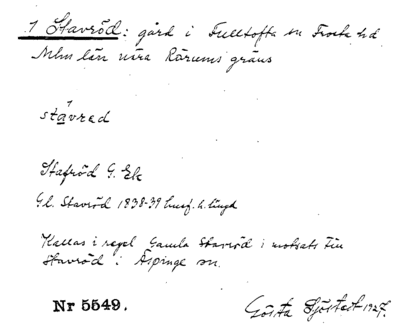 1 Stavröd: gård i Fulltofta sn Frosta hd
Mlms län nära Rörums gräns
stávrad
Stafröd G. Ek
Gl. Stavröd 1838-39 husf. h. längd
Kallas i regel Gamla Stavröd i motsats till
Stavröd i Äspinge sn.
Nr 5549.
Gösta Sjöstedt 1927.